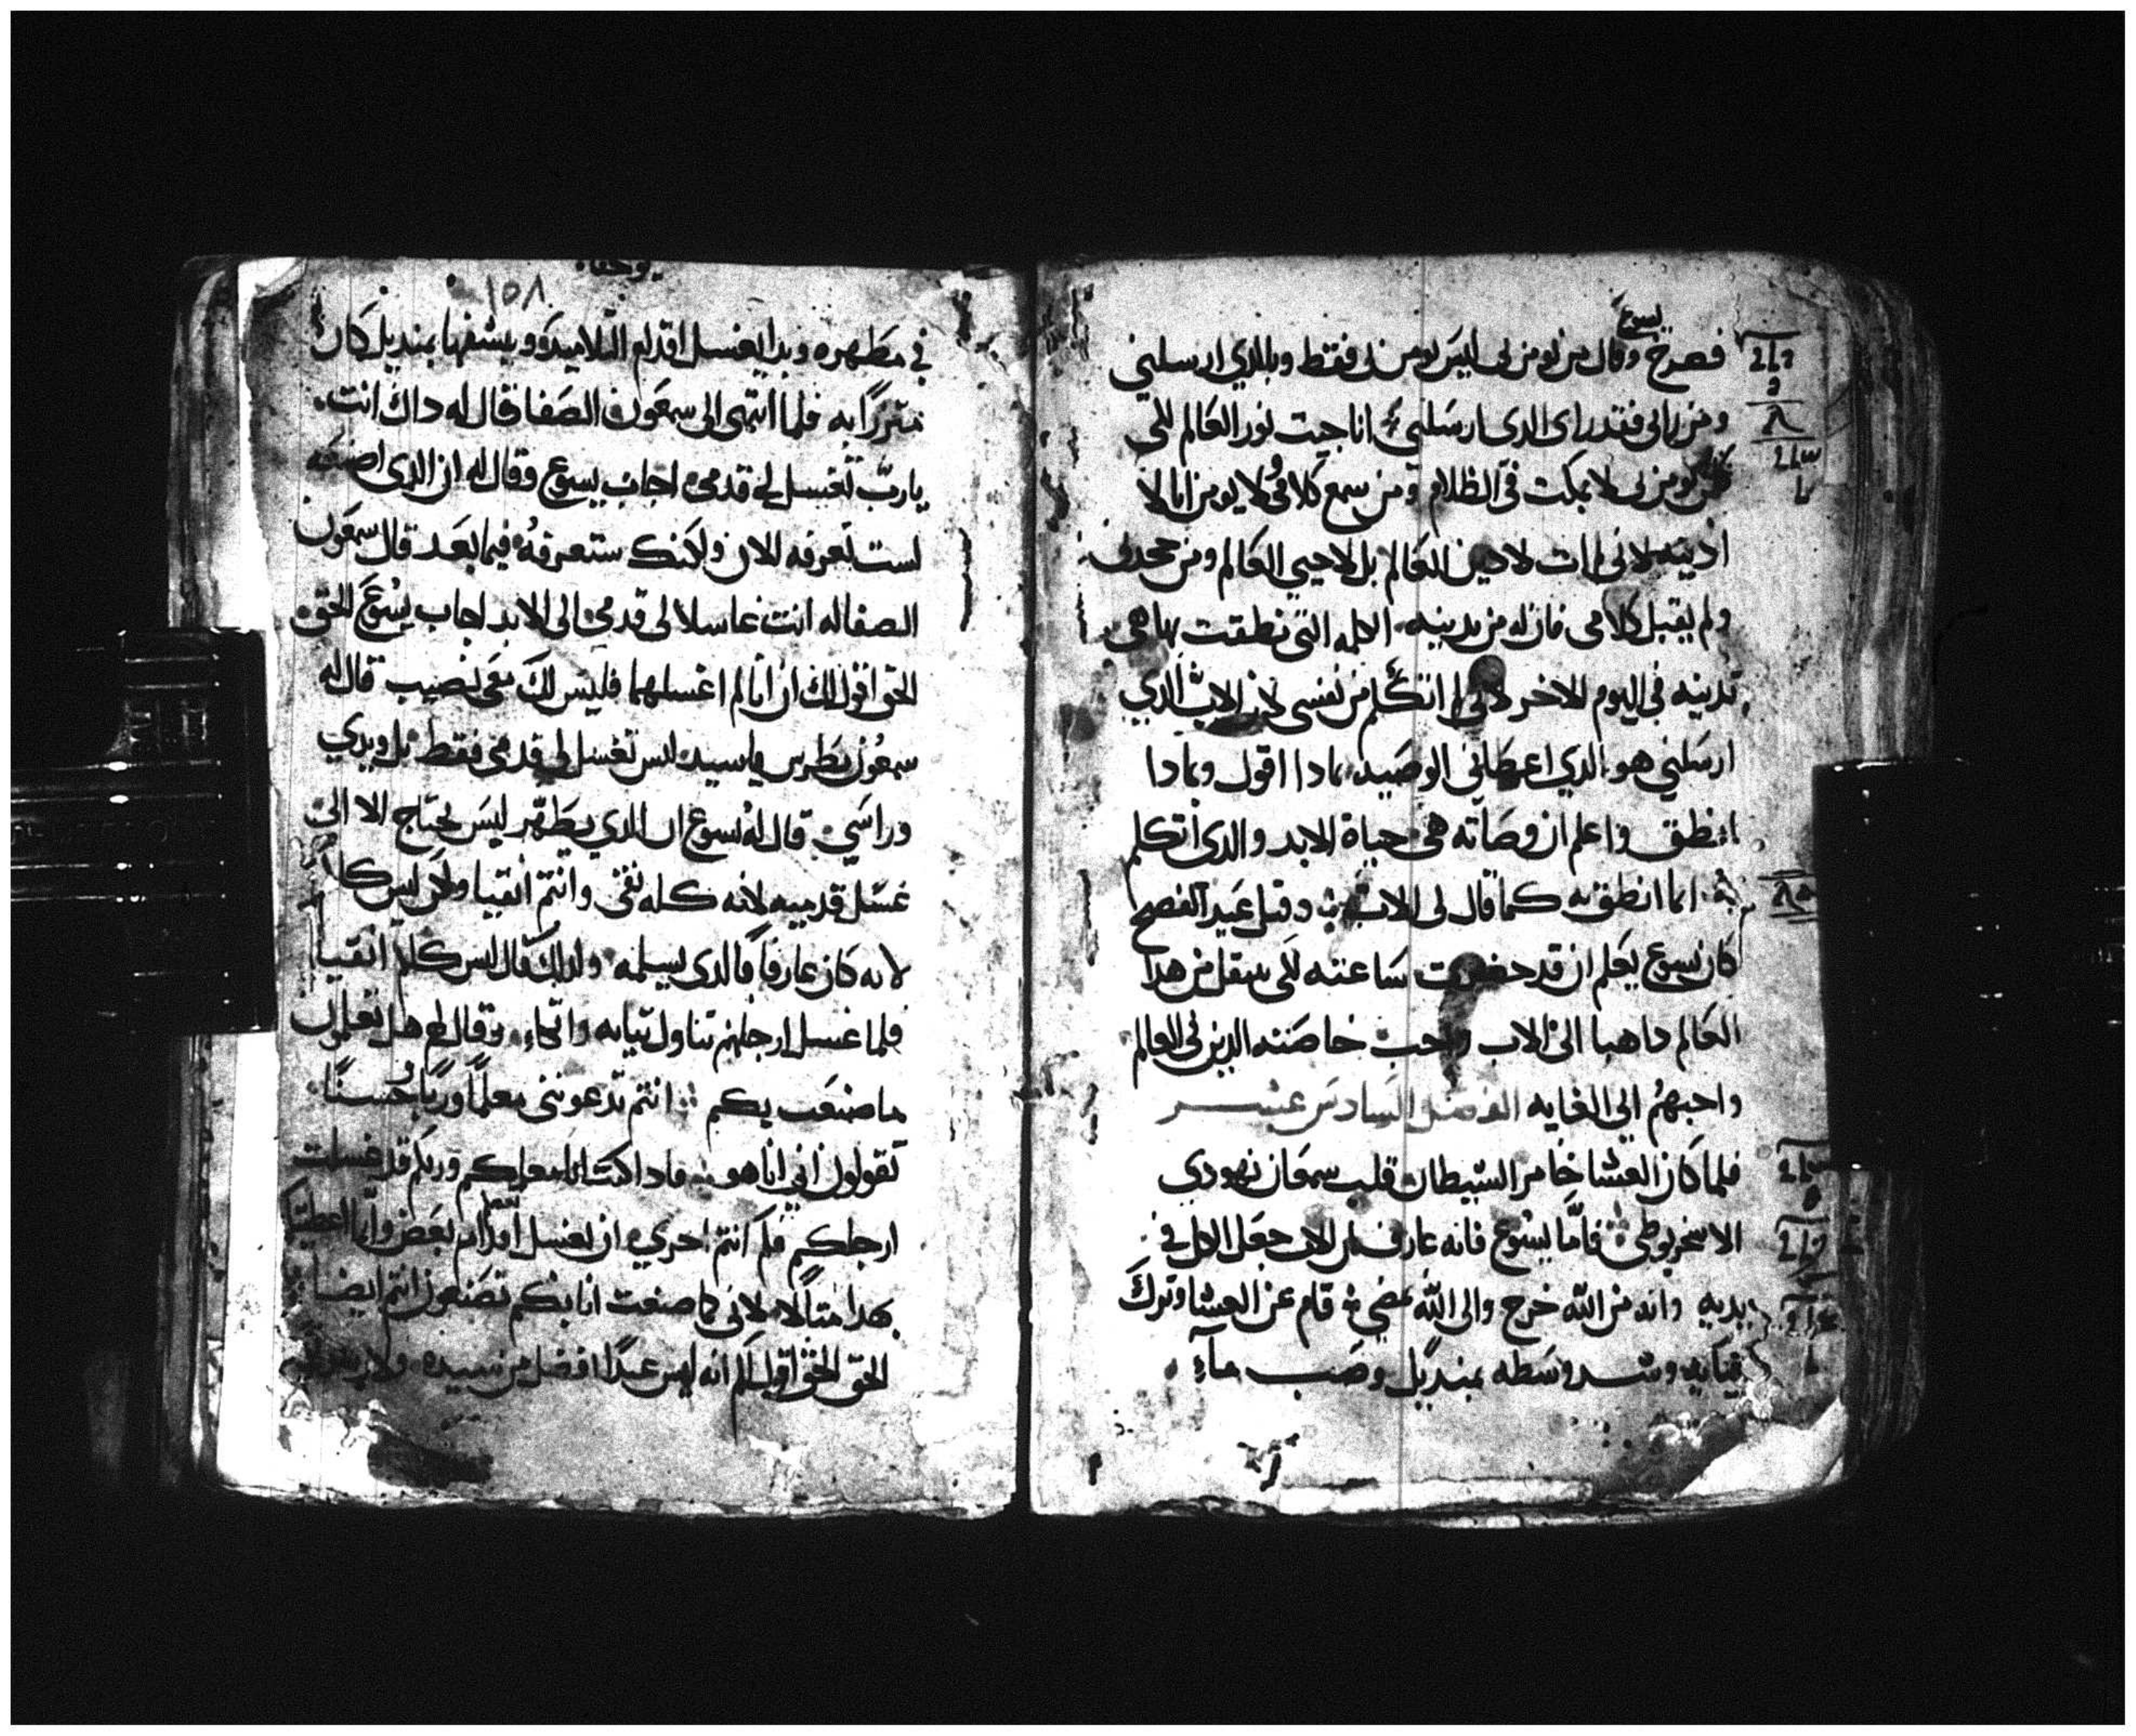 يسوع
فصرخ وقال من يومن بى ليس يومن بى فقط وبالذي ارسلني
ومن رانى فقد راى الدى ارسلنى انا جيت نور العالم لكى
كل من يومن بى لا يمكت فى الظلام ومن سمع كلامى ولا يومن انا لا
ادينه لانى لم ات لادين العالم بل لاحيي العالم ومن جحدنى
ولم يقبل كلامى فان له من يدينه الكلمه التى نطقت بها هى
تدينه فى اليوم الاخر لانى لم اتكلم من نفسى لان الاب الذي
ارسلني هو الذي اعطانى الوصيه بمادا اقول وبمادا
انطق واعلم ان وصاته هى حياة الابد والدى اتكلم
به انما انطق به كما قال لى الاب وقبل عيد الفصح
كان يسوع يعلم ان قد حضرت ساعته لكى ينتقل من هدا
العالم داهبا الى الاب واحب خاصته الدين فى العالم
واحبهم الي الغايه الفصل السادس عشر
فلما كان العشا خامر الشيطان قلب سمعان يهودي
الاسخريوطى فاما يسوع فانه عارف ان الاب جعل الكل فى
يديه وانه من الله خرج والى الله يمضي قام عن العشا وترك
تيابه وشد وسطه بمنديل وصب مآء
يوحنا
١٥٨
فى مطهره وبدا يغسل اقدام التلاميد وينشفها بمنديل كان
متزرًا به فلما انتهى الى سمعون الصفا قال له داك انت
يارب تغسل لى قدمى اجاب يسوع وقال له ان الدى اصنعه
لست تعرفه الان ولكنك ستعرفه فيما بعد قال سمعون
الصفا له انت غاسلا لى قدمى الى الابد اجاب يسوع الحق
الحق اقول لك ان انا لم اغسلهما فليس لك معى نصيب قال له
سمعون بطرس ياسيد ليس تغسل لى قدمى فقط بل ويدي
وراسي قال له يسوع ان الذي يطهر ليس يحتاج الا الى
غسل قدميه لانه كله نقى وانتم انقيا ولكن ليس كلكم
لانه كان عارفًا بالدى يسلمه ولدلك قال ليس كلكم انقيا
فلما غسل ارجلهم تناول تيابه واتكاء وقال لهم هل تعلمون
ما صنعت بكم انتم تدعوننى معلمًا وربًا وحسنًا
تقولون انى انا هو فادا كنت انا معلمكم وربكم قد غسلت
ارجلكم فكم انتم احرى ان يغسل بعضكم اقدام بعض وانما اعطيتكم
بهدا متالًا لانى كما صنعت انا بكم تصنعون انتم ايضا
الحق الحق اقول لكم انه ليس عبدًا افضل من سيده ولا